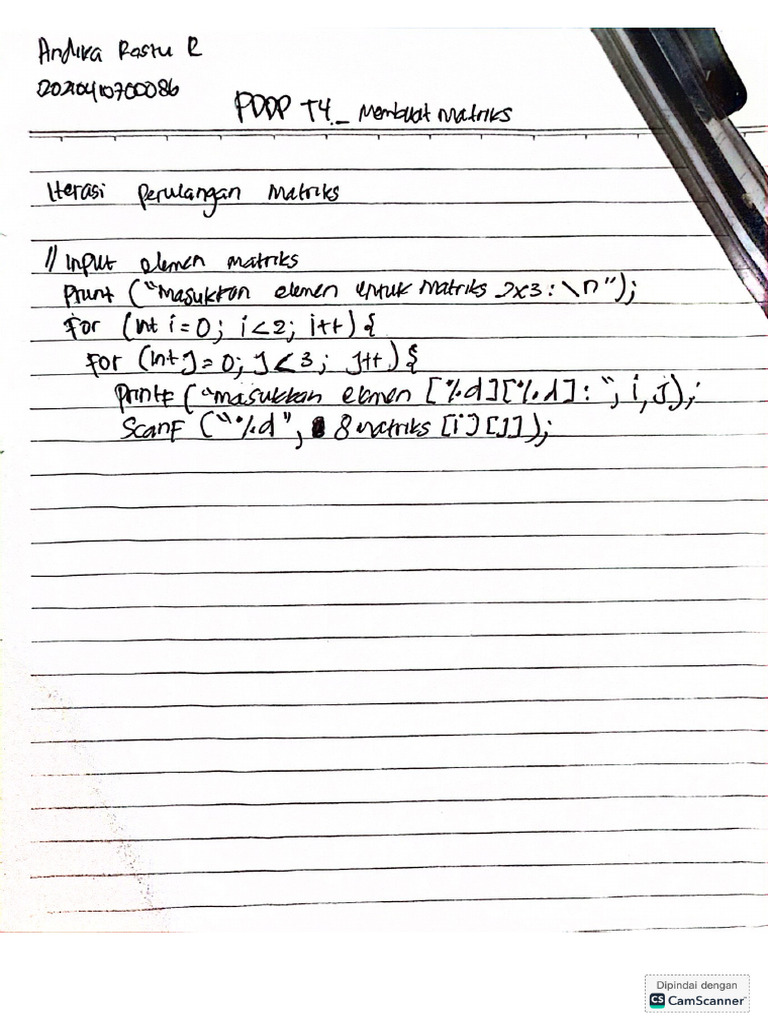 Andika Rastu R
20210410700086
PDDP T4_ Membuat Matriks
Iterasi perulangan Matriks
// Input elemen matriks
print ("Masukkan elemen untuk Matriks 2x3 : \n");
for (int i = 0; i < 2; i++) {
for (int j = 0; j < 3; j++) {
printf ("Masukkan elemen [%d][%d] : ", i, j);
scanf ("%d", &matriks [i][j]);
Dipindai dengan
CS CamScanner